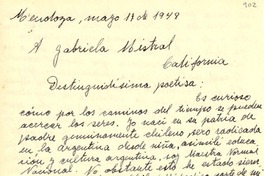 902
Mendoza, mayo 13 de 1948
A Gabriela Mistral
California
Distinguidísima poetisa:
Es curioso
cómo por los caminos del tiempo se pueden
acercar los seres. Yo nací en su patria de
padre genuinamente chileno pero radicada
en la Argentina desde niña, asimilé educa
ción y cultura argentina, soy Maestra Normal
Nacional. No obstante esto he estado siem